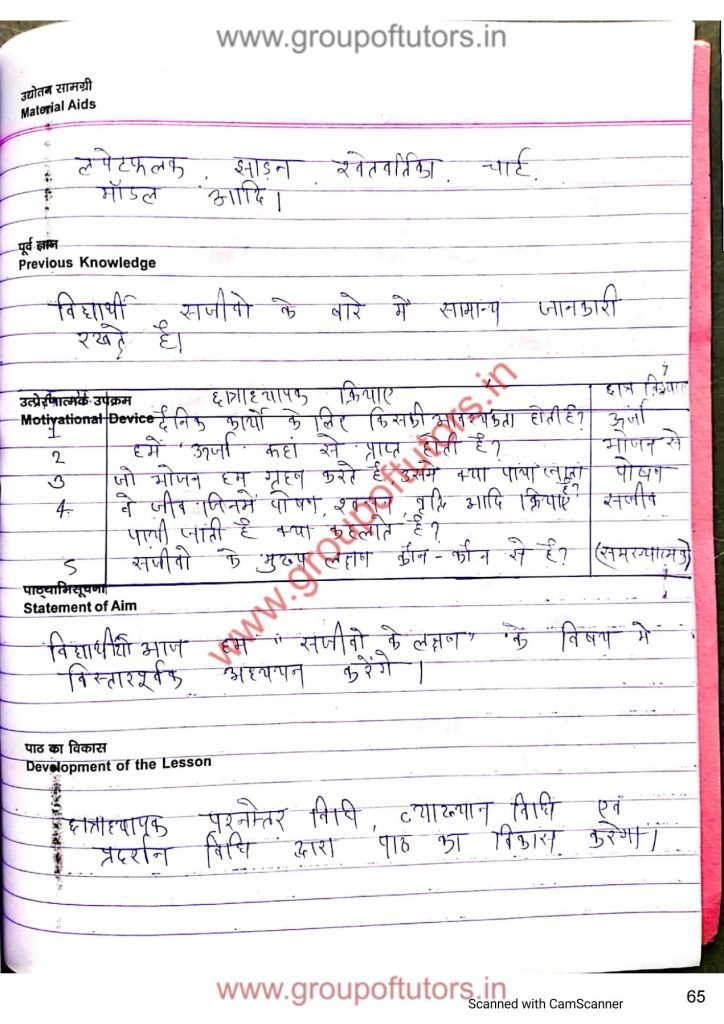 www.groupoftutors.in
उद्योतन सामग्री
Material Aids
लपेटफलक, झाड़न, श्वेतवर्तिका, चार्ट,
मॉडल आदि।
पूर्व ज्ञान
Previous Knowledge
विद्यार्थी सजीवो के बारे में सामान्य जानकारी
रखते है।
उत्प्रेरणात्मक उपक्रम छात्राध्यापक क्रियाए छात्र क्रियाए
Motivational Device
1 दैनिक कार्यो के लिए किसकी आवश्यकता होती है? ऊर्जा
2 हमें ऊर्जा कहां से प्राप्त होती है? भोजन से
3 जो भोजन हम ग्रहण करते है, उसमें क्या पाया जाता है? पोषण
4. वे जीव जिनमें पोषण, श्वसन, वृद्धि आदि क्रियाएं सजीव
पायी जाती है क्या कहलाते है?
5 सजीवो के मुख्य लक्षण कौन-कौन से है? (समस्यात्मक)
पाठ्याभिसूचना
Statement of Aim
विद्यार्थीयों आज हम "सजीवो के लक्षण" के विषय मे
विस्तारपूर्वक अध्ययन करेंगे।
पाठ का विकास
Development of the Lesson
छात्राध्यापक प्रश्नोत्तर विधि, व्याख्यान विधि एवं
प्रदर्शन विधि द्वारा पाठ का विकास करेगा।
www.groupoftutors.in
www.groupoftutors.in
Scanned with CamScanner
65